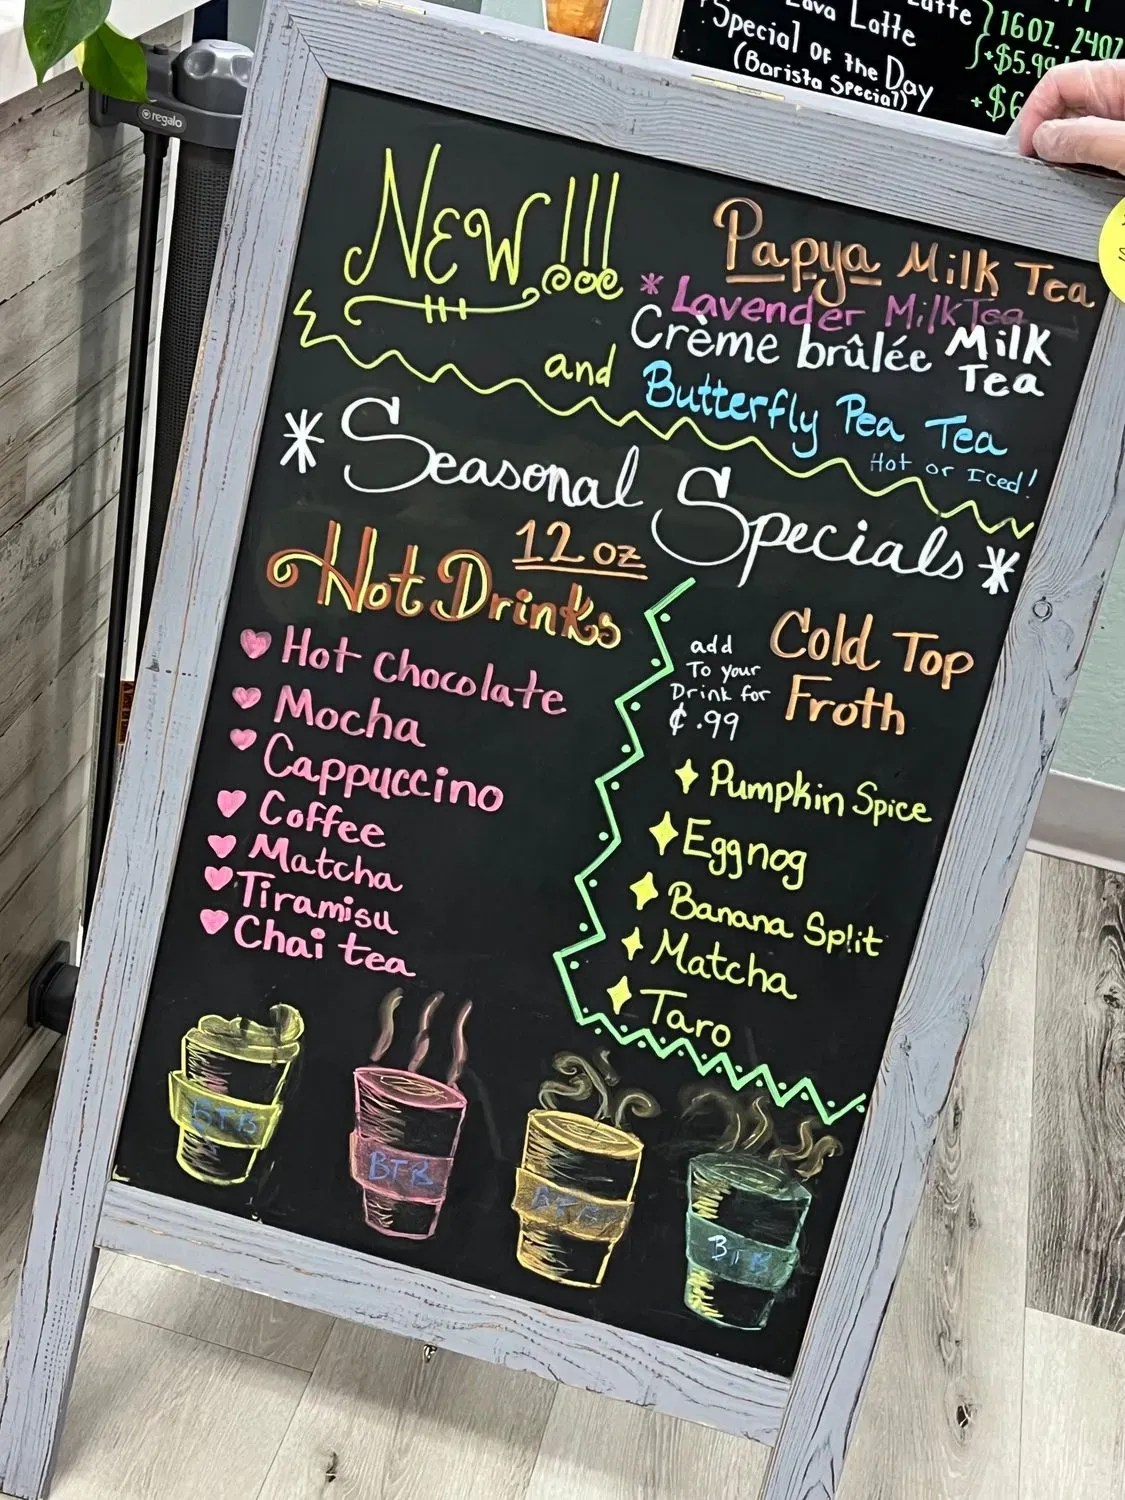 Lava Latte
Latte
Special Of the Day
(Barista Special)
16oz. 24oz
+$5.99
+$6
regalo
NEW!!!
Papya Milk Tea
* Lavender Milk Tea
Crème brûlée Milk
Tea
and Butterfly Pea Tea
Hot or Iced!
* Seasonal Specials *
12 oz
Hot Drinks
Hot chocolate
Mocha
Cappuccino
Coffee
Matcha
Tiramisu
Chai tea
add
To your
Drink for
¢ .99
Cold Top
Froth
Pumpkin Spice
Eggnog
Banana Split
Matcha
Taro
BTB
BTB
BTB
BTB